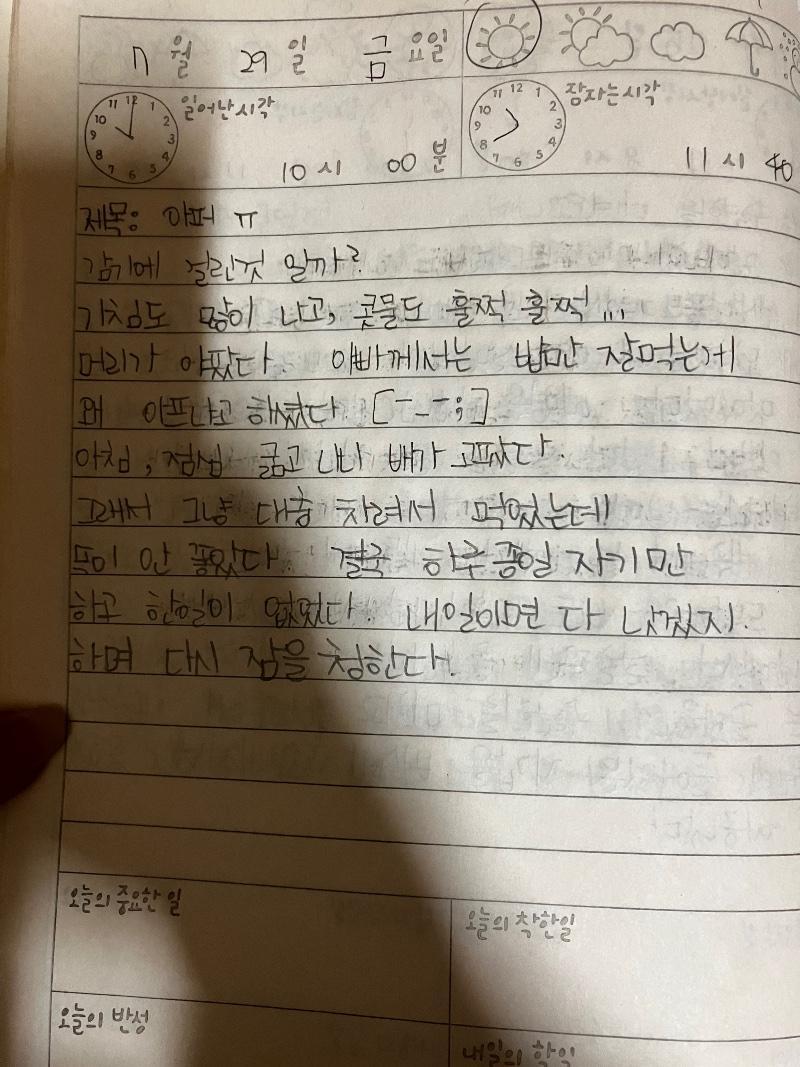 7 월 29 일 금 요일
일어난시각
10 시 00 분
잠자는시각
11 시 40
제목: 아퍼 ㅠ
감기에 걸린것 일까?
기침도 많이 나고, 콧물도 훌쩍 훌쩍...
머리가 아팠다. 아빠께서는 밥만 잘먹는게
왜 아프냐고 하셨다. [-_-;]
아침, 점심 굶고 나니 배가 고팠다.
그래서 그냥 대충 차려서 먹었는데!
득이 안 풀렸다. 결국 하루 종일 자기만
하고 한일이 없었다. 내일이면 다 낫겠지.
하며 다시 잠을 청한다.
오늘의 중요한 일
오늘의 착한일
오늘의 반성
내일의 할일